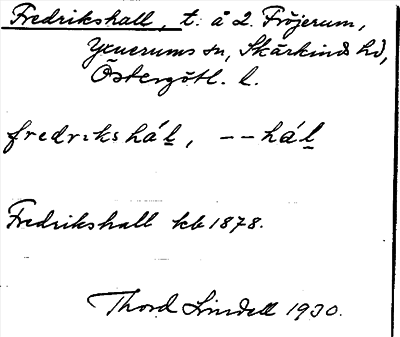 Fredrikshall, t. å 2. Fröjerum,
Yxnerums sn, Skärkinds hd,
Östergötl. l.
fredrikshál, -- hál
Fredrikshall kb 1878.
Thord Lindell 1930.